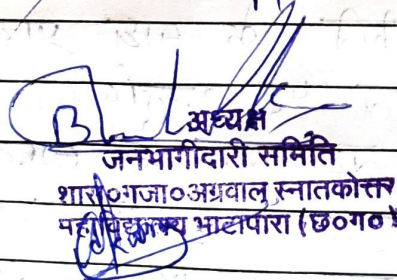 अध्यक्ष
जनभागीदारी समिति
शास०गजा०अग्रवाल स्नातकोत्तर
महाविद्यालय भाटापारा (छ०ग०)